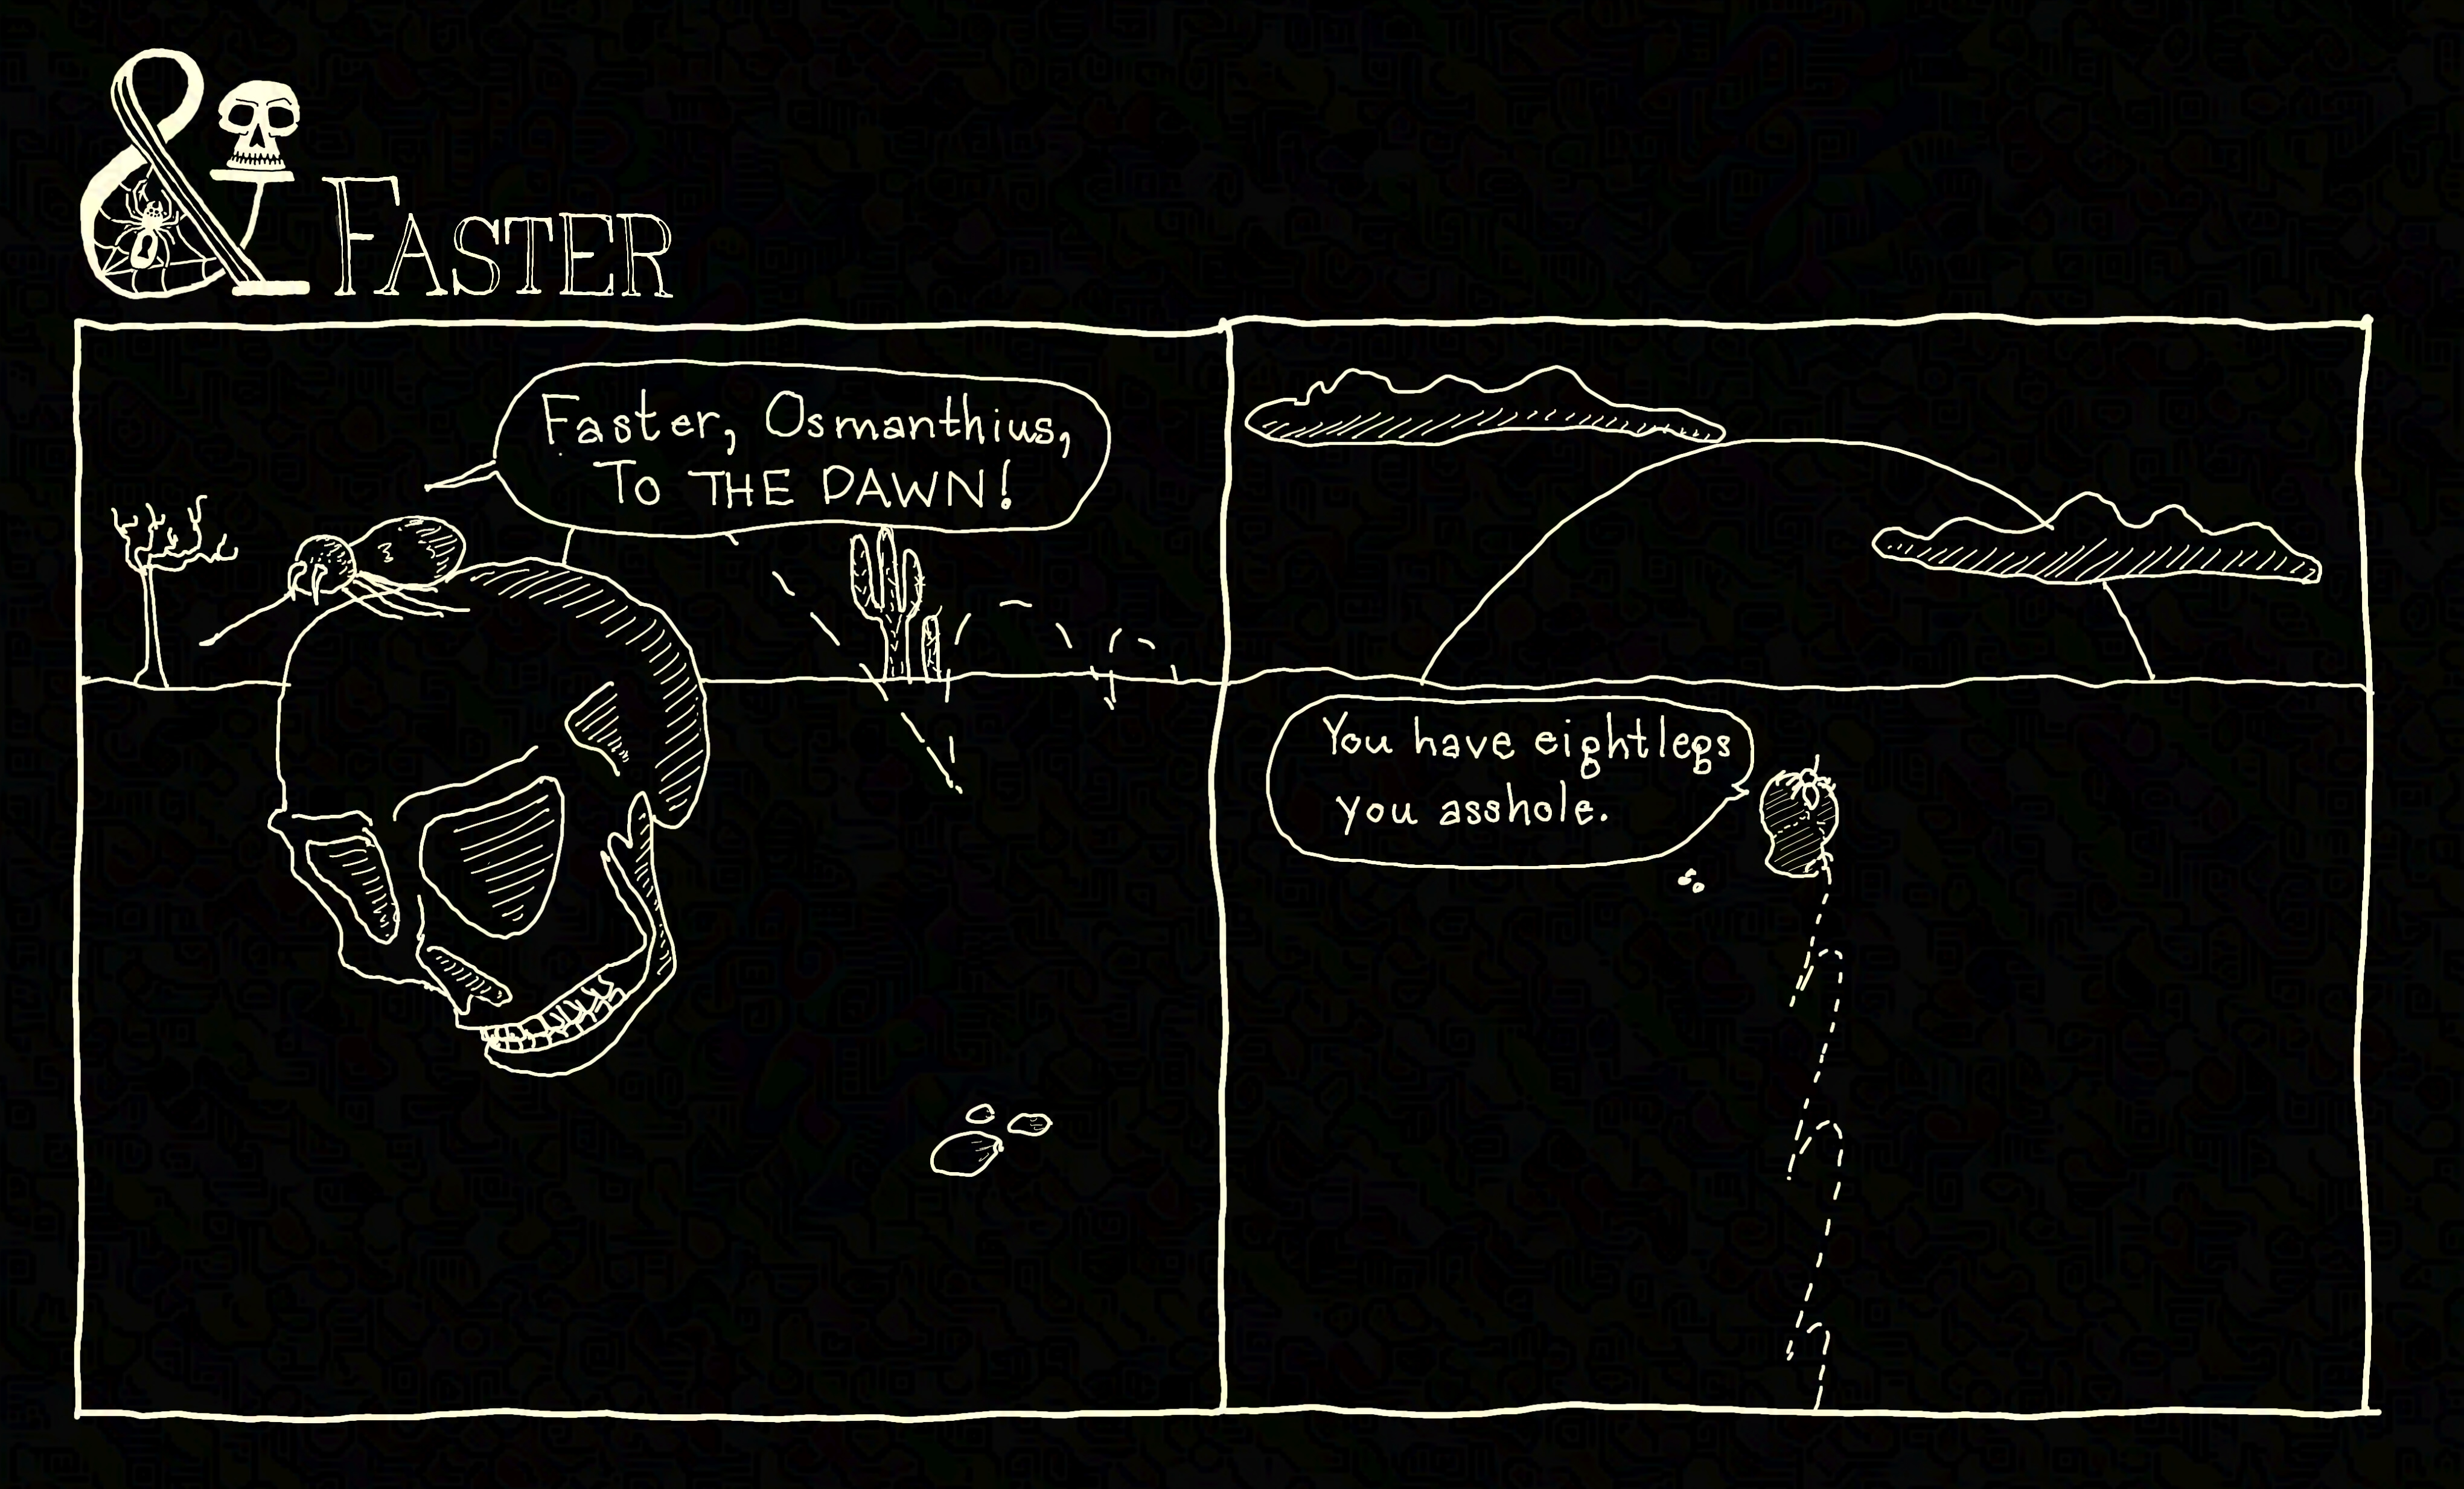 & FASTER
Faster, Osmanthius,
TO THE DAWN!
You have eight legs
you asshole.